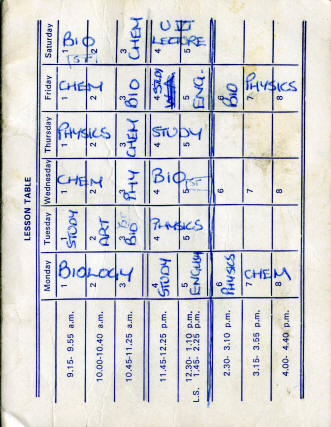 LESSON TABLE
Monday Tuesday Wednesday Thursday Friday Saturday
9.15- 9.55 a.m.
1 BIOLOGY 1 STUDY 1 CHEM 1 PHYSICS 1 CHEM 1 BIO
10.00-10.40 a.m.
2 2 ART 2 2 2 2
10.45-11.25 a.m.
3 3 BIO 3 PHY 3 CHEM 3 BIO 3 CHEM
11.45-12.25 p.m.
4 STUDY 4 PHYSICS 4 BIO 4 STUDY 4 STUDY 4 LECTURE
12.30- 1.10 p.m.
L.S. 1.45- 2.25 p.m.
5 ENGLISH 5 5 5 5 ENG. 5
2.30- 3.10 p.m.
6 PHYSICS 6 6 6 6 BIO
3.15- 3.55 p.m.
7 CHEM 7 7 7 7 PHYSICS
4.00- 4.40 p.m.
8 8 8 8 8